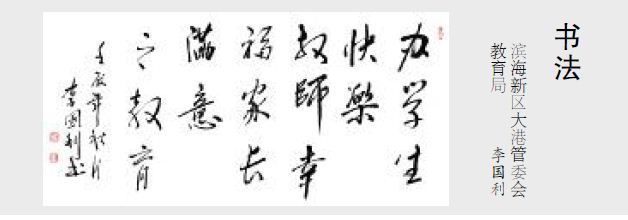 书法
滨海新区大港管委会
教育局 李国利
办学生
快樂
教師幸
福家长
滿意
之教育
壬辰年秋月
李國利书